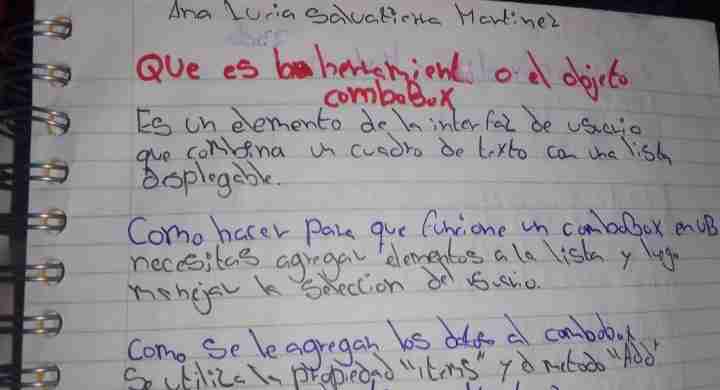 Ana Lucia Salvatierra Martinez
Que es la herramient o el objeto
comboBox
Es un elemento de la interfaz de usuario
que combina un cuadro de texto con una lista
desplegable.
Como hacer para que funcione un comboBox en VB
necesitas agregar elementos a la lista y luego
manejar la seleccion del usuario.
Como se le agregan los datos al combobox
Se utiliza la propiedad "items" y el metodo "Add"